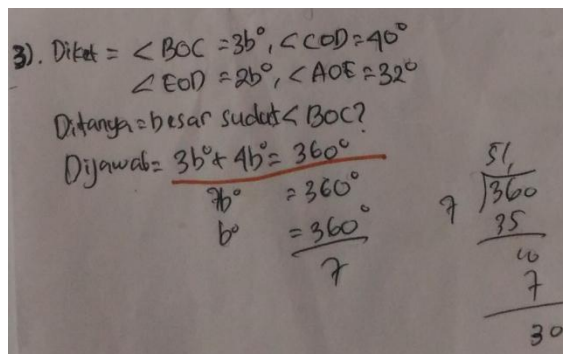 3). Diket = <BOC = 3b°, <COD = 40°
<EOD = 2b°, <AOE = 32°
Ditanya = besar sudut < BOC?
Dijawab = 3b° + 4b° = 360°
7b° = 360°
b° = 360°
7
51,
7 360
35
10
7
30